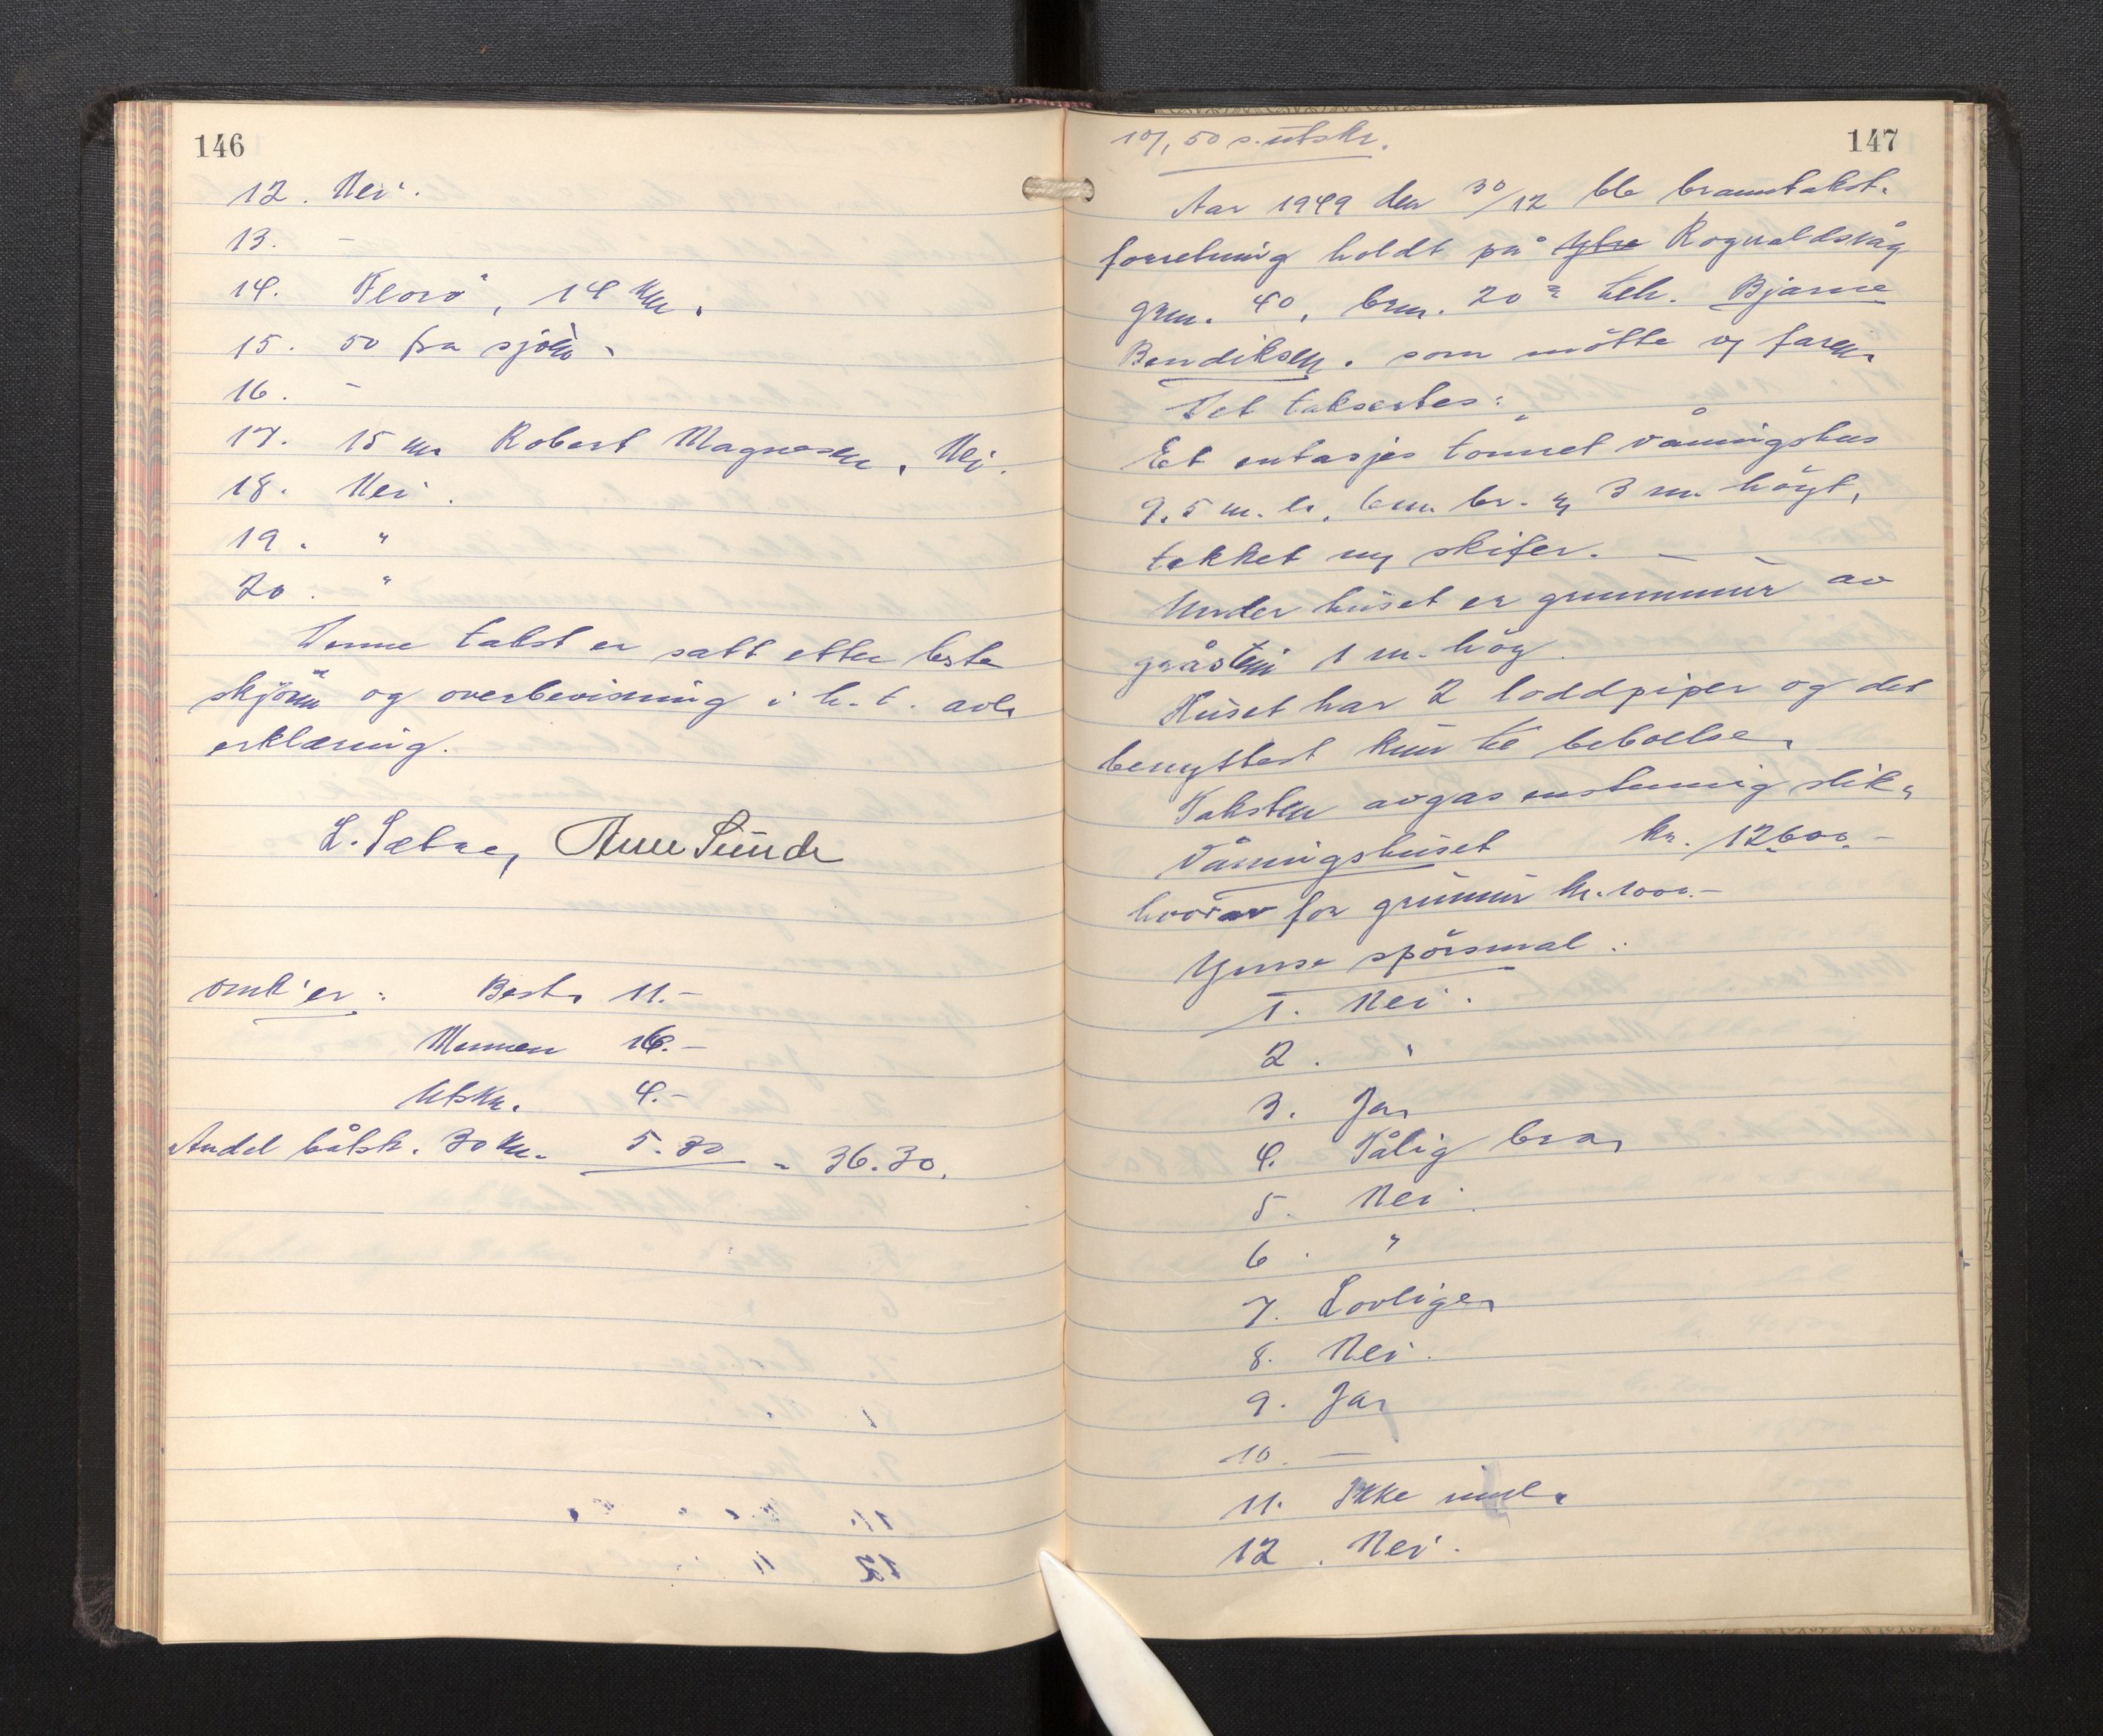 146
12. Nei.
13. –
14. Florø, 14 km.
15. 50 fra sjøen.
16. –
17. 15 m Robert Magnesen. Nei.
18. Nei.
19. "
20. "
Denne takst er satt etter beste
skjønn og overbevisning i h.t. avl.
erklæring.
L. Sætre, Arne Sunde
omk'er: Best. 11.–
Mennene 16.–
Utskr. 4.–
Andel båtsk. 30 km. 5.30 = 36.30.
147
10/1 50 s. utskr.
Aar 1949 den 30/12 ble branntakst-
forretning holdt på Ytre Rognaldsvåg
grn. 40, brn. 20 tilh. Bjarne
Bendiksen. som møtte og faren.
Det taksertes:
Et entasjes tømret våningshus
9.5 m. l., 6 m. br. og 3 m. høgt,
tekket m/ skifer. – –
Under huset er grunnmur av
gråstein 1 m. høg.
Huset har 2 loddpiper og det
benyttest kun til beboelse.
Taksten avgas enstemmig slik.
Våningshuset kr. 12.600.–
hvorav for grunmur kr. 1000.–
Ymse spørsmal:
1. Nei.
2. "
3. Ja.
4. Tålig bra.
5. Nei.
6. "
7. Lovlige.
8. Nei.
9. Ja.
10. –
11. Ikke innl.
12. Nei.